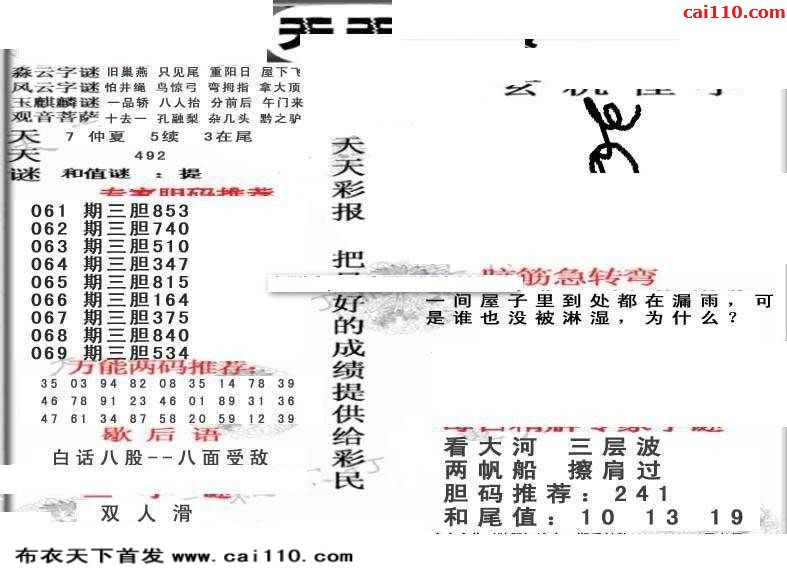 cai110.com
淼云字谜 旧巢燕 只见尾 重阳日 屋下飞
风云字谜 怕井绳 鸟惊弓 弯拇指 拿大顶
玉麒麟谜 一品轿 八人抬 分前后 午门来
观音菩萨 十去一 孔融梨 杂几头 黔之驴
天 7 仲夏 5续 3在尾
天 492
谜 和值谜 : 提
专家胆码推荐
061 期三胆853
062 期三胆740
063 期三胆510
064 期三胆347
065 期三胆815
066 期三胆164
067 期三胆375
068 期三胆840
069 期三胆534
万能两码推荐:
35 03 94 82 08 35 14 78 39
46 78 91 23 46 01 89 31 36
47 61 34 87 58 20 59 12 39
歇后语
白话八股--八面受敌
双人滑
布衣天下首发 www.cai110.com
天天彩报
把
好的成绩提供给彩民
脑筋急转弯
一间屋子里到处都在漏雨，可
是谁也没被淋湿，为什么？
看大河 三层波
两帆船 擦肩过
胆码推荐: 241
和尾值: 10 13 19